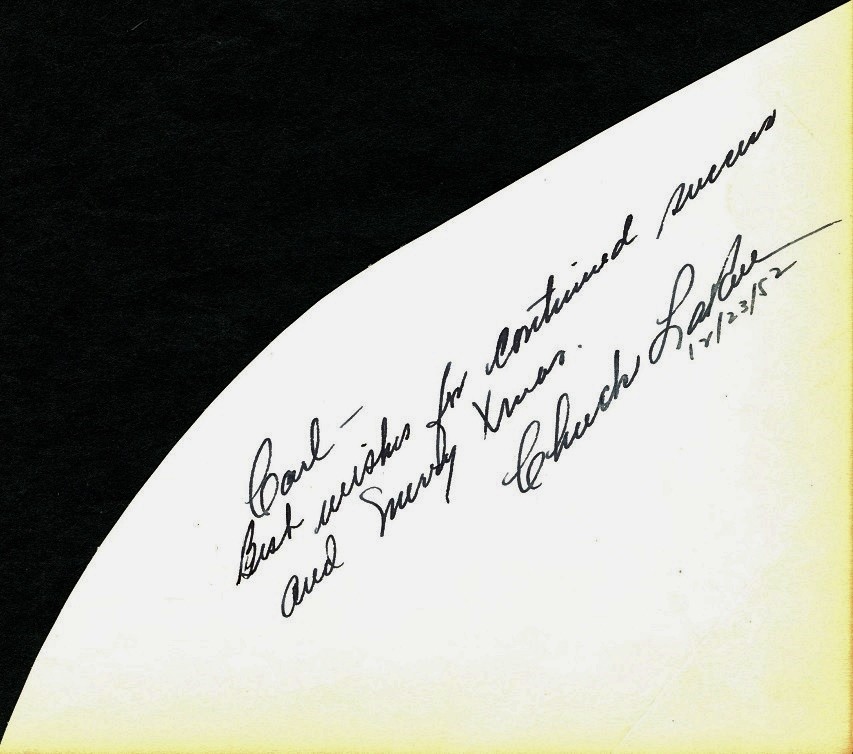 Carl —
Best wishes for continued success
and Merry Xmas.
Chuck LaRue
12/23/52